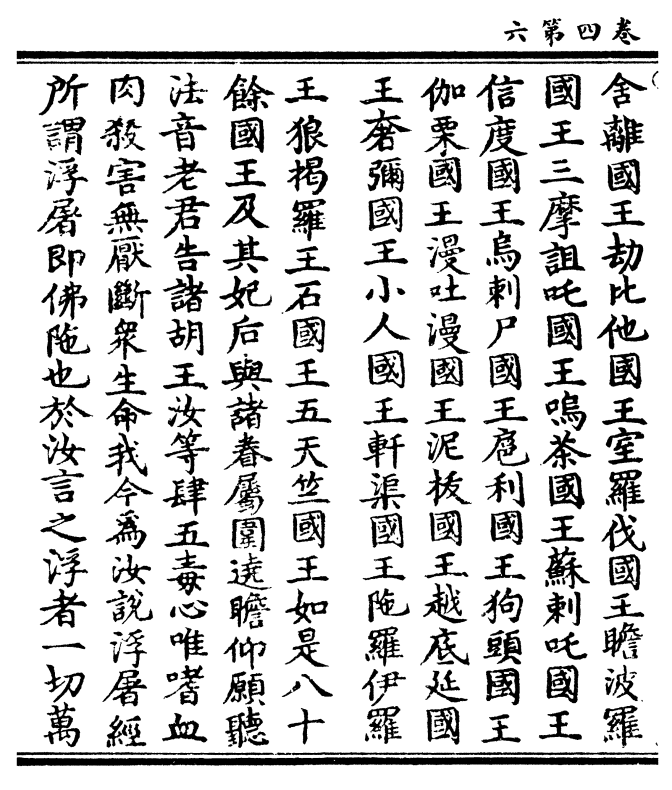 卷四第六
舍離國王劫比他國王室羅伐國王瞻波羅
國王三摩詛吒國王嗚茶國王蘇剌吒國王
信度國王烏剌尸國王扈利國王狗頭國王
伽栗國王漫吐漫國王泥拔國王越底延國
王奢彌國王小人國王軒渠國王陁羅伊羅
王狼楬羅王石國王五天竺國王如是八十
餘國王及其妃后與諸眷屬圍遶瞻仰願聽
法音老君告諸胡王汝等肆五毒心唯嗜血
肉殺害無厭斷衆生命我今爲汝說浮屠經
所謂浮屠即佛陁也於汝言之浮者一切萬